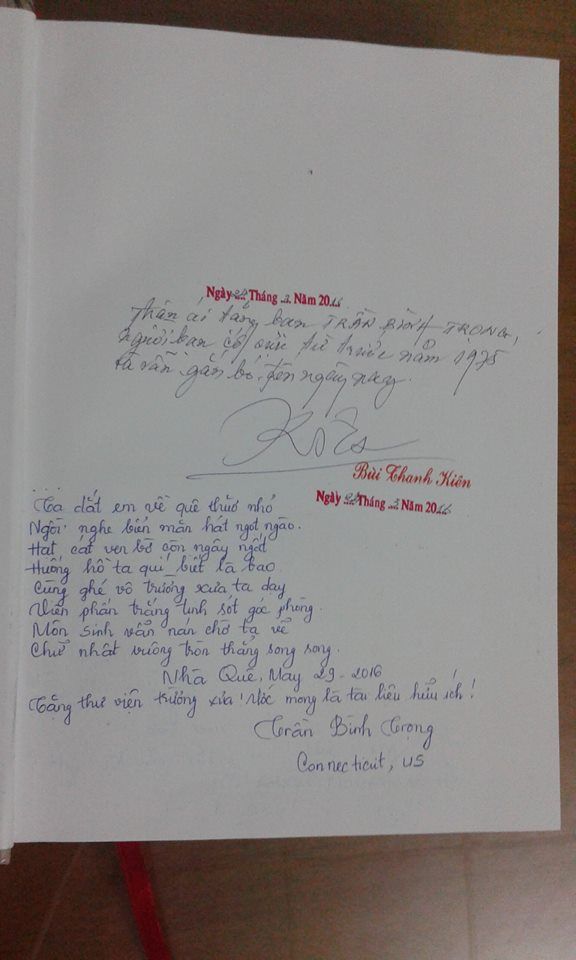 Ngày 29 Tháng 3 Năm 2016
Thân ái tặng bạn TRẦN BÌNH TRỌNG,
người bạn cố cựu từ trước năm 1975
và vẫn gắn bó đến ngày nay.
Bùi Thanh Kiên
Ngày 29 Tháng 3 Năm 2016
...
Ta dắt em về quê thuở nhỏ
Ngồi nghe biển mặn hát ngọt ngào.
Hạt cát ven bờ còn ngây ngất
Huống hồ ta quí biết là bao
Cùng ghé vô trường xưa ta dạy
Viên phấn trắng tinh sót góc phòng.
Môn sinh vẫn nán chờ ta về
Chữ nhật vuông tròn thẳng song song.
Nhà Quê, May 29-2016
Tặng thư viện trường xưa! Ước mong là tài liệu hữu ích!
Trần Bình Trọng
Connecticut, US